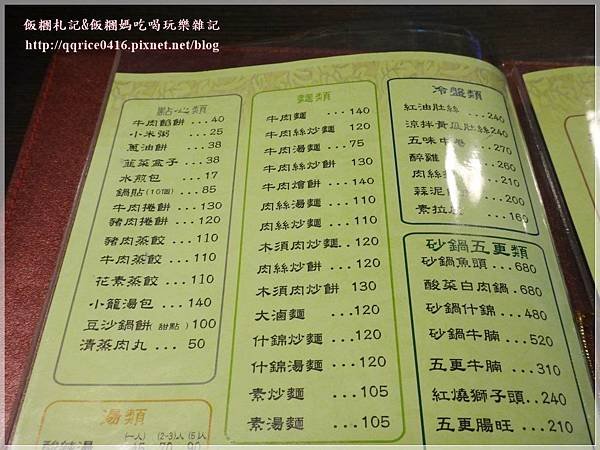 飯糰札記&飯糰媽吃喝玩樂雜記
http://qqrice0416.pixnet.net/blog
類
牛肉餡餅 ...40
小米粥 ...25
蔥油餅 38
韮菜盒子 ...38
水煎包 ... 17
鍋貼(10個) ...85
牛肉捲餅 ...130
豬肉捲餅 ...120
豬肉蒸餃 ...110
牛肉蒸餃 ...110
花素蒸餃 ...110
小籠湯包 ...140
豆沙鍋餅 (甜點) 100
清蒸肉丸 ... 50
湯類
(一人) (2-3)人 (5)人
酸辣湯
麵類
牛肉麵 ...140
牛肉絲炒麵 120
牛肉湯麵 ...75
牛肉絲炒餅 130
牛肉燴餅 ...140
肉絲湯麵 ...110
肉絲炒麵 ...110
木須肉炒麵..120
肉絲炒餅 ...120
木須肉炒餅 130
大滷麵 ...120
什錦炒麵 ...120
什錦湯麵 ...120
素炒麵 ...105
素湯麵 ...105
冷盤類
紅油肚絲 ...240
涼拌黃瓜肚絲240
五味牛 ...270
醉雞 ...260
肉絲 ...210
蒜泥 ...200
素拉 ...160
砂鍋五更類
砂鍋魚頭 ...680
酸菜白肉鍋.530
砂鍋什錦 ...480
砂鍋牛腩 ...520
五更牛腩 ...310
紅燒獅子頭..240
五更腸旺 ...210